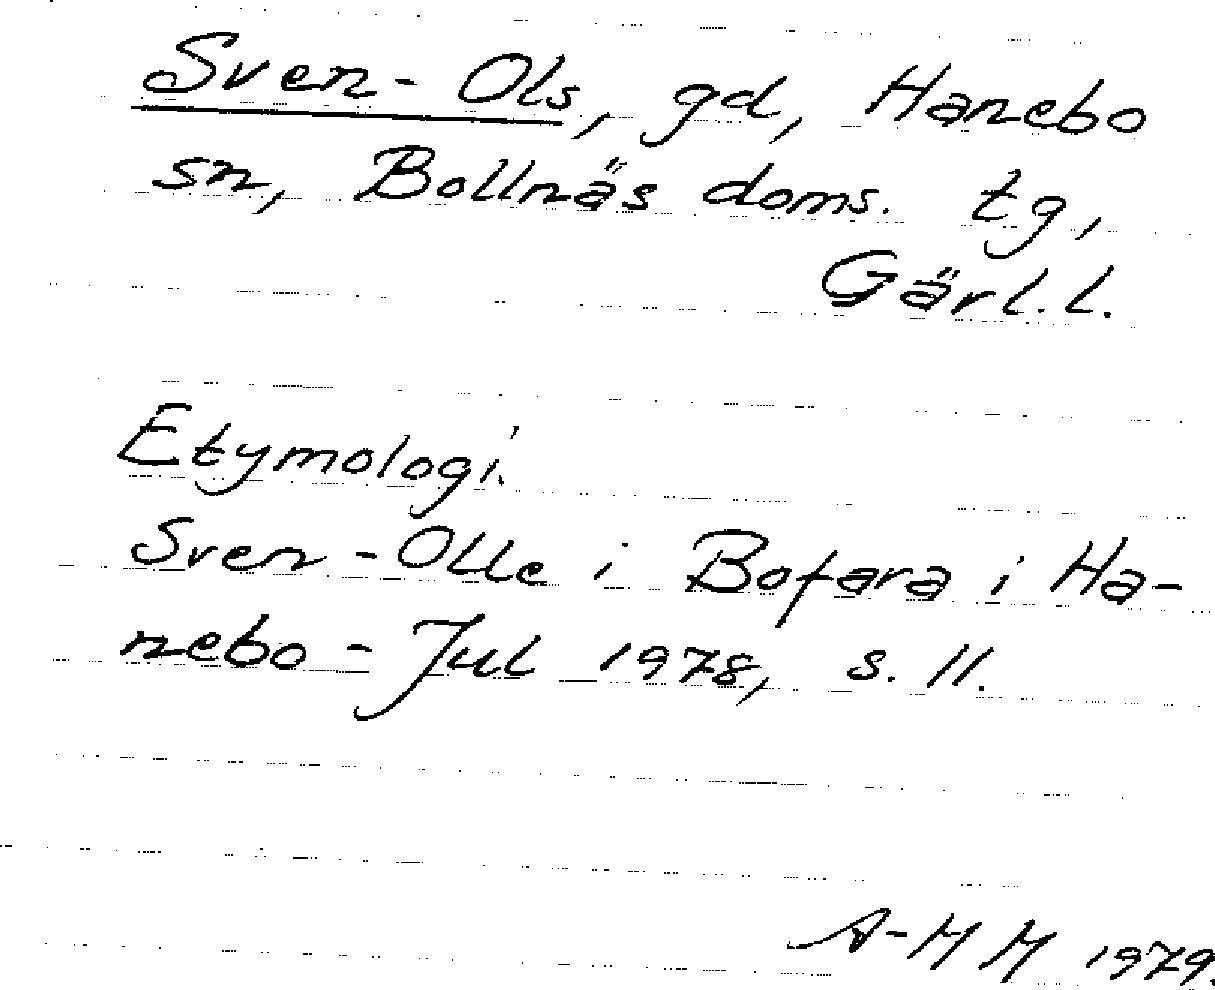 Sven-Ols, gd, Hanebo
sn, Bollnäs doms. tg,
Gävl. l.
Etymologi.
Sven-Olle i Bofara i Ha-
nebo - Jul 1978, s. 11.
A-MM 1979.